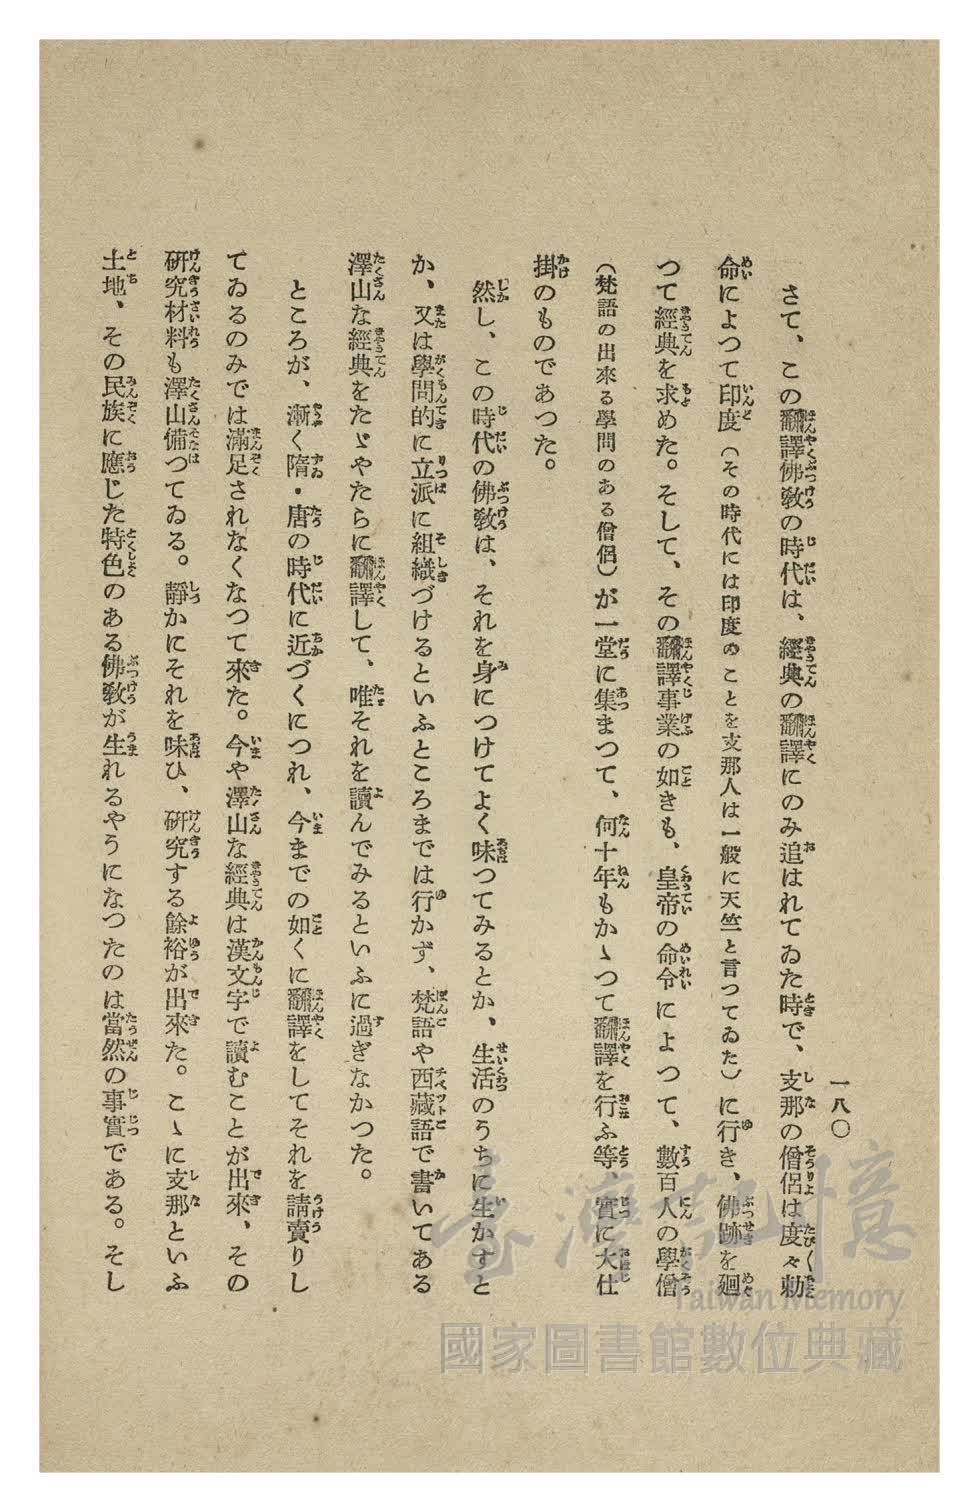 一八〇
さて、この飜譯佛敎の時代は、經典の飜譯にのみ追はれてゐた時で、支那の僧侶は度々勅
命によつて印度（その時代には印度のことを支那人は一般に天竺と言つてゐた）に行き、佛跡を廻
つて經典を求めた。そして、その飜譯事業の如きも、皇帝の命令によつて、數百人の學僧
（梵語の出來る學問のある僧侶）が一堂に集まつて、何十年もかゝつて飜譯を行ふ等、實に大仕
掛のものであつた。
然し、この時代の佛敎は、それを身につけてよく味つてみるとか、生活のうちに生かすと
か、又は學問的に立派に組織づけるといふところまでは行かず、梵語や西藏語で書いてある
澤山な經典をたゞやたらに飜譯して、唯それを讀んでみるといふに過ぎなかつた。
ところが、漸く隋・唐の時代に近づくにつれ、今までの如くに飜譯をしてそれを請賣りし
てゐるのみでは滿足されなくなつて來た。今や澤山な經典は漢文字で讀むことが出來、その
硏究材料も澤山備つてゐる。靜かにそれを味ひ、硏究する餘裕が出來た。こゝに支那といふ
土地、その民族に應じた特色のある佛敎が生れるやうになつたのは當然の事實である。そし
臺灣記憶
Taiwan Memory
國家圖書館數位典藏